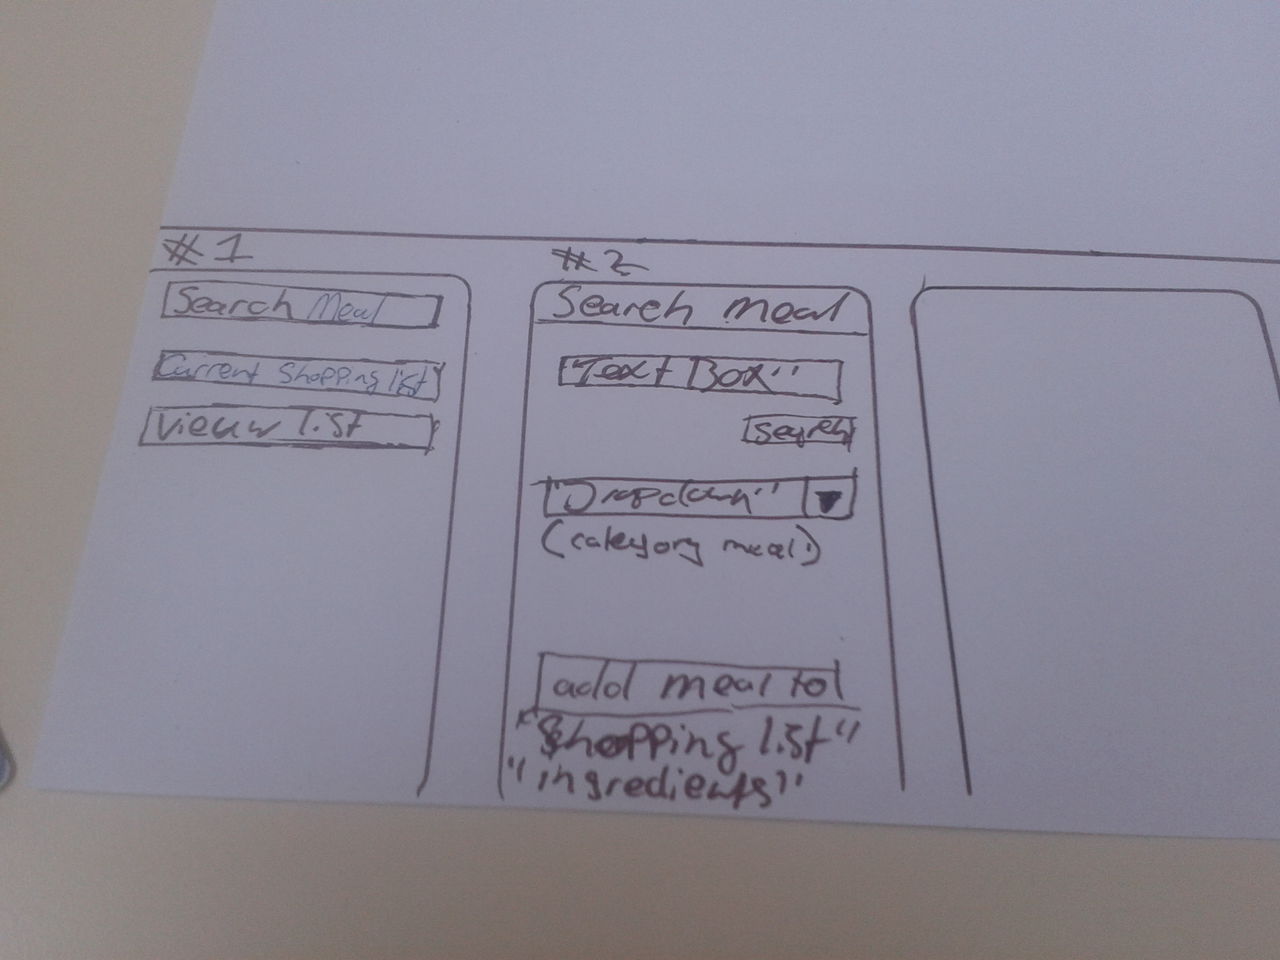 #1
Search Meal
Current Shopping list
View list
#2
Search meal
"Text Box"
Search
"Dropdown"
(category meal)
add meal to
"Shopping list"
"ingredients"